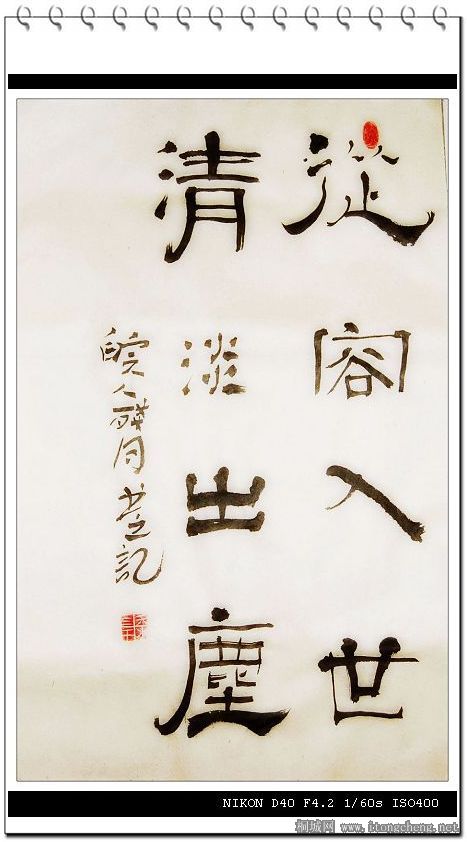 從容入世
清淡出塵
皖人殘月書記
NIKON D40 F4.2 1/60s ISO400
桐城网 www.itongcheng.net